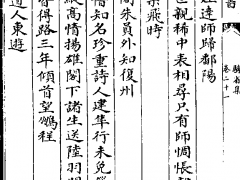 卷二十一
姪達師歸鄱陽
親稀中表相尋只有師惆悵
葉飛時
朱員外知復州
惜知名珍重詩人建隼行未免
縱高情揚雄閣下諸生送陸羽
得路三年傾首望鵬程
道人東遊